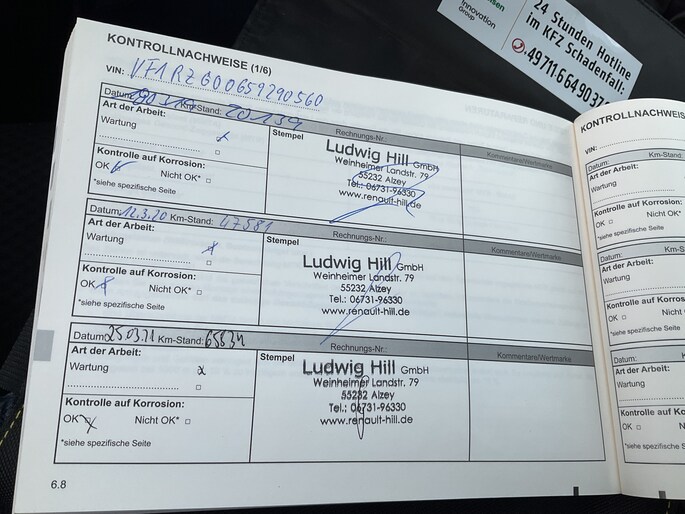 Innovation
Group
24 Stunden Hotline
im KFZ Schadenfall:
KONTROLLNACHWEISE (1/6)
VIN: VF1RZG00659290560
Datum: Km-Stand: 20139
Rechnungs-Nr.
Kommentare/Wertmarke
Art der Arbeit:
Wartung
Stempel
Ludwig Hill GmbH
Weinheimer Landstr. 79
55232 Alzey
Tel.: 06731-96330
www.renault-hill.de
Kontrolle auf Korrosion:
OK Nicht OK*
*siehe spezifische Seite
Datum: 12.3.20 Km-Stand: 47581
Rechnungs-Nr.:
Kommentare/Wertmarke
Art der Arbeit:
Wartung
Stempel
Ludwig Hill GmbH
Weinheimer Landstr. 79
55232 Alzey
Tel.: 06731-96330
www.renault-hill.de
Kontrolle auf Korrosion:
OK Nicht OK*
*siehe spezifische Seite
Datum: 25.03.21 Km-Stand: 65634
Rechnungs-Nr.:
Kommentare/Wertmarke
Art der Arbeit:
Wartung
Stempel
Ludwig Hill GmbH
Weinheimer Landstr. 79
55232 Alzey
Tel.: 06731-96330
www.renault-hill.de
Kontrolle auf Korrosion:
OK Nicht OK*
*siehe spezifische Seite
6.8
VIN:
Datum: Km-Stand:
Art der Arbeit:
Wartung
Kontrolle auf
OK Nicht OK*
*siehe spezifische
Datum: Km-S
Art der Arbeit:
Wartung
Kontrolle auf Ko
OK Nicht
*siehe spezifische
Art der Arbeit:
Wartung
Kontrolle auf
OK
*siehe spezifische